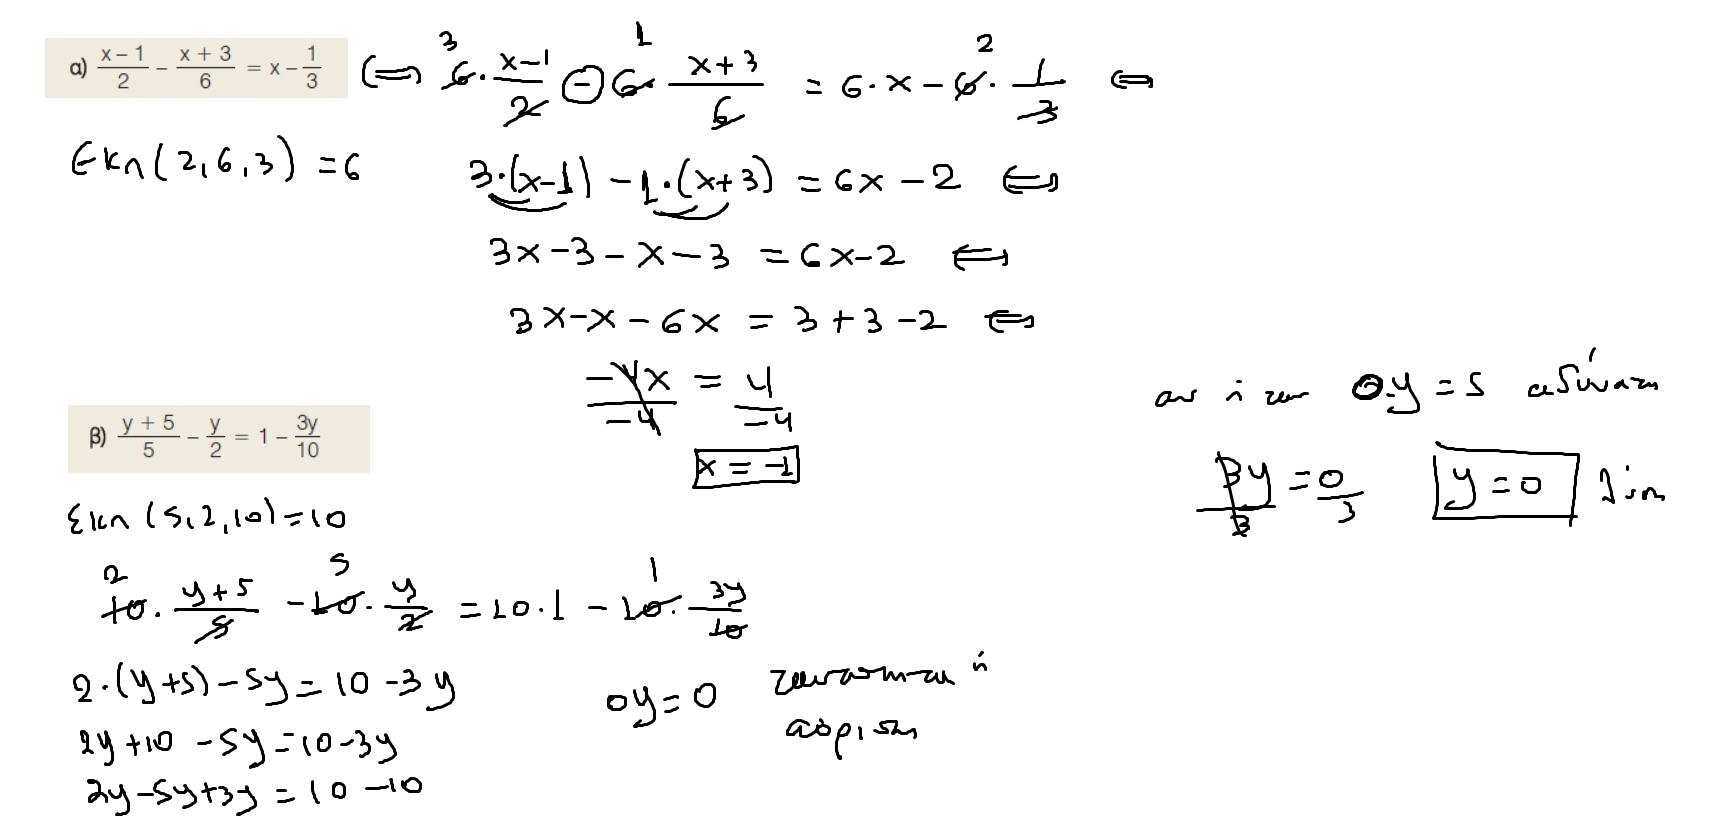 α) (x − 1)/2 − (x + 3)/6 = x − 1/3 ⟺ 6 · (x−1)/2 − 6 · (x+3)/6 = 6·x − 6 · 1/3 ⟺
3 1 2
Εκπ(2,6,3) = 6
3·(x−1) − 1·(x+3) = 6x − 2 ⟺
3x − 3 − x − 3 = 6x − 2 ⟺
3x − x − 6x = 3 + 3 − 2 ⟺
−4x/−4 = 4/−4
x = −1
β) (y + 5)/5 − y/2 = 1 − 3y/10
Εκπ (5,2,10) = 10
2 5 1
10 · (y+5)/5 − 10 · y/2 = 10·1 − 10 · 3y/10
2·(y+5) − 5y = 10 − 3y
2y + 10 − 5y = 10 − 3y
2y − 5y + 3y = 10 − 10
0y = 0 ταυτότητα ή
αόριστη
αν ήταν 0·y = 5 αδύνατη
3y/3 = 0/3 y = 0 λύση